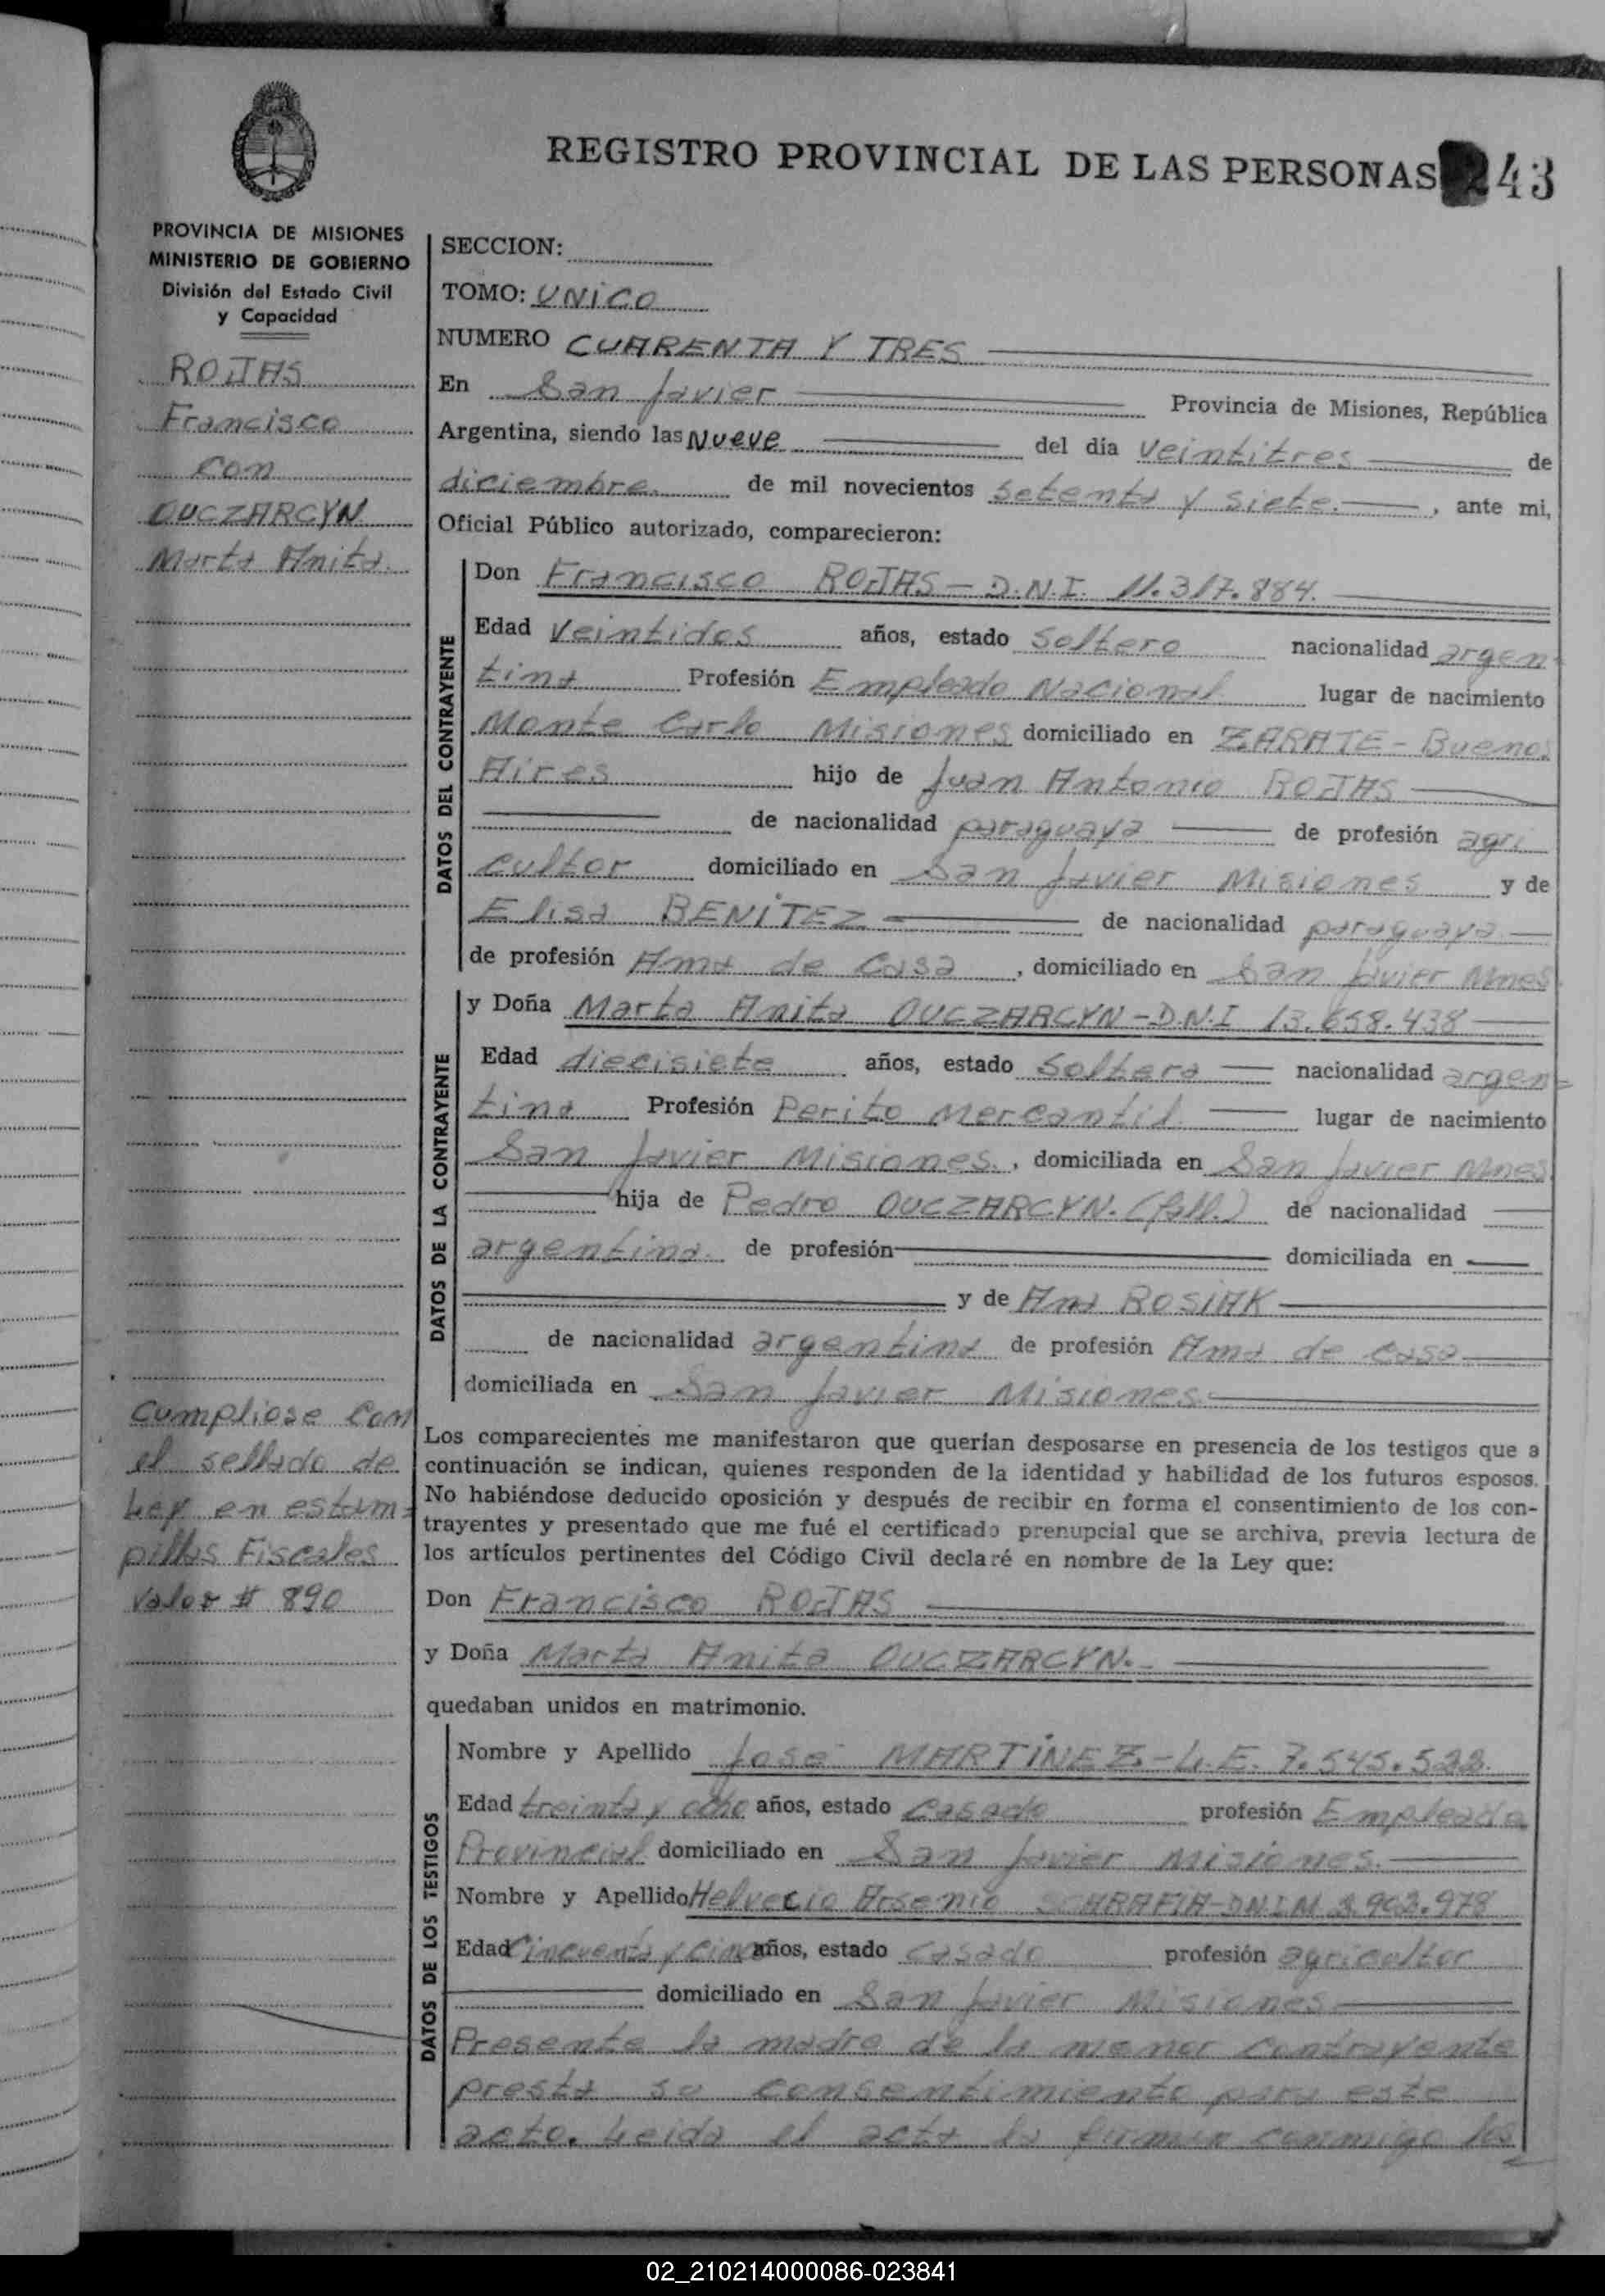 REGISTRO PROVINCIAL DE LAS PERSONAS 243
PROVINCIA DE MISIONES
MINISTERIO DE GOBIERNO
División del Estado Civil
y Capacidad
ROJAS
Francisco
con
OUCZARCYN
Marta Anita.
Cumpliose con
el sellado de
Ley en estam-
pillas Fiscales
valor $ 890
SECCION:
TOMO: UNICO
NUMERO CUARENTA Y TRES
En San Javier Provincia de Misiones, República
Argentina, siendo las Nueve del día veintitres de
diciembre de mil novecientos setenta y siete. , ante mi,
Oficial Público autorizado, comparecieron:
DATOS DEL CONTRAYENTE
Don Francisco ROJAS - D.N.I. 11.317.884.
Edad veintidos años, estado soltero nacionalidad argen-
tina Profesión Empleado Nacional lugar de nacimiento
Monte Carlo Misiones domiciliado en ZARATE - Buenos
Aires hijo de Juan Antonio ROJAS
de nacionalidad paraguaya de profesión agri
cultor domiciliado en San Javier Misiones y de
Elisa BENITEZ de nacionalidad paraguaya
de profesión Ama de Casa , domiciliado en San Javier Mnes
DATOS DE LA CONTRAYENTE
y Doña Marta Anita OUCZARCYN - D.N.I 13.658.438
Edad diecisiete años, estado soltera nacionalidad argen-
tina Profesión Perito Mercantil lugar de nacimiento
San Javier Misiones. , domiciliada en San Javier Mnes.
hija de Pedro OUCZARCYN. (fall.) de nacionalidad
argentina. de profesión domiciliada en
y de Ana ROSIAK
de nacionalidad argentina de profesión Ama de casa
domiciliada en San Javier Misiones.
Los comparecientes me manifestaron que querían desposarse en presencia de los testigos que a
continuación se indican, quienes responden de la identidad y habilidad de los futuros esposos.
No habiéndose deducido oposición y después de recibir en forma el consentimiento de los con-
trayentes y presentado que me fué el certificado prenupcial que se archiva, previa lectura de
los artículos pertinentes del Código Civil declaré en nombre de la Ley que:
Don Francisco ROJAS
y Doña Marta Anita OUCZARCYN.
quedaban unidos en matrimonio.
DATOS DE LOS TESTIGOS
Nombre y Apellido José MARTINEZ - L.E. 7.545.522.
Edad treinta y ocho años, estado casado profesión Empleado
Provincial domiciliado en San Javier Misiones.
Nombre y Apellido Helvecio Arsenio DNI.M 3.902.978
Edad Cincuenta y cinco años, estado casado profesión agricultor
domiciliado en San Javier Misiones
Presente la madre de la menor contrayente
presta su consentimiento para este
acto. Leida el acta la firman conmigo los
02_210214000086-023841